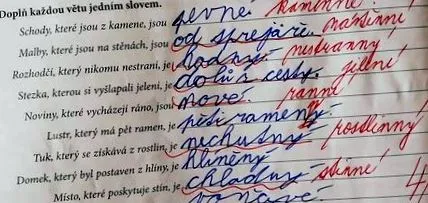 Doplň každou větu jedním slovem.
Schody, které jsou z kamene, jsou pevné. kamenné!
Malby, které jsou na stěnách, jsou od sprejáře. nástěnné!
Rozhodčí, který nikomu nestraní, je hodný. nestranný!
Stezka, kterou si vyšlapali jeleni, je dolů z cesty. jelení!
Noviny, které vycházejí ráno, jsou nové. ranní
Lustr, který má pět ramen, je pětiramenný.
Tuk, který se získává z rostlin, je nechutný rostlinný!
Domek, který byl postaven z hlíny, je hliněný
Místo, které poskytuje stín, je chladný stinné!